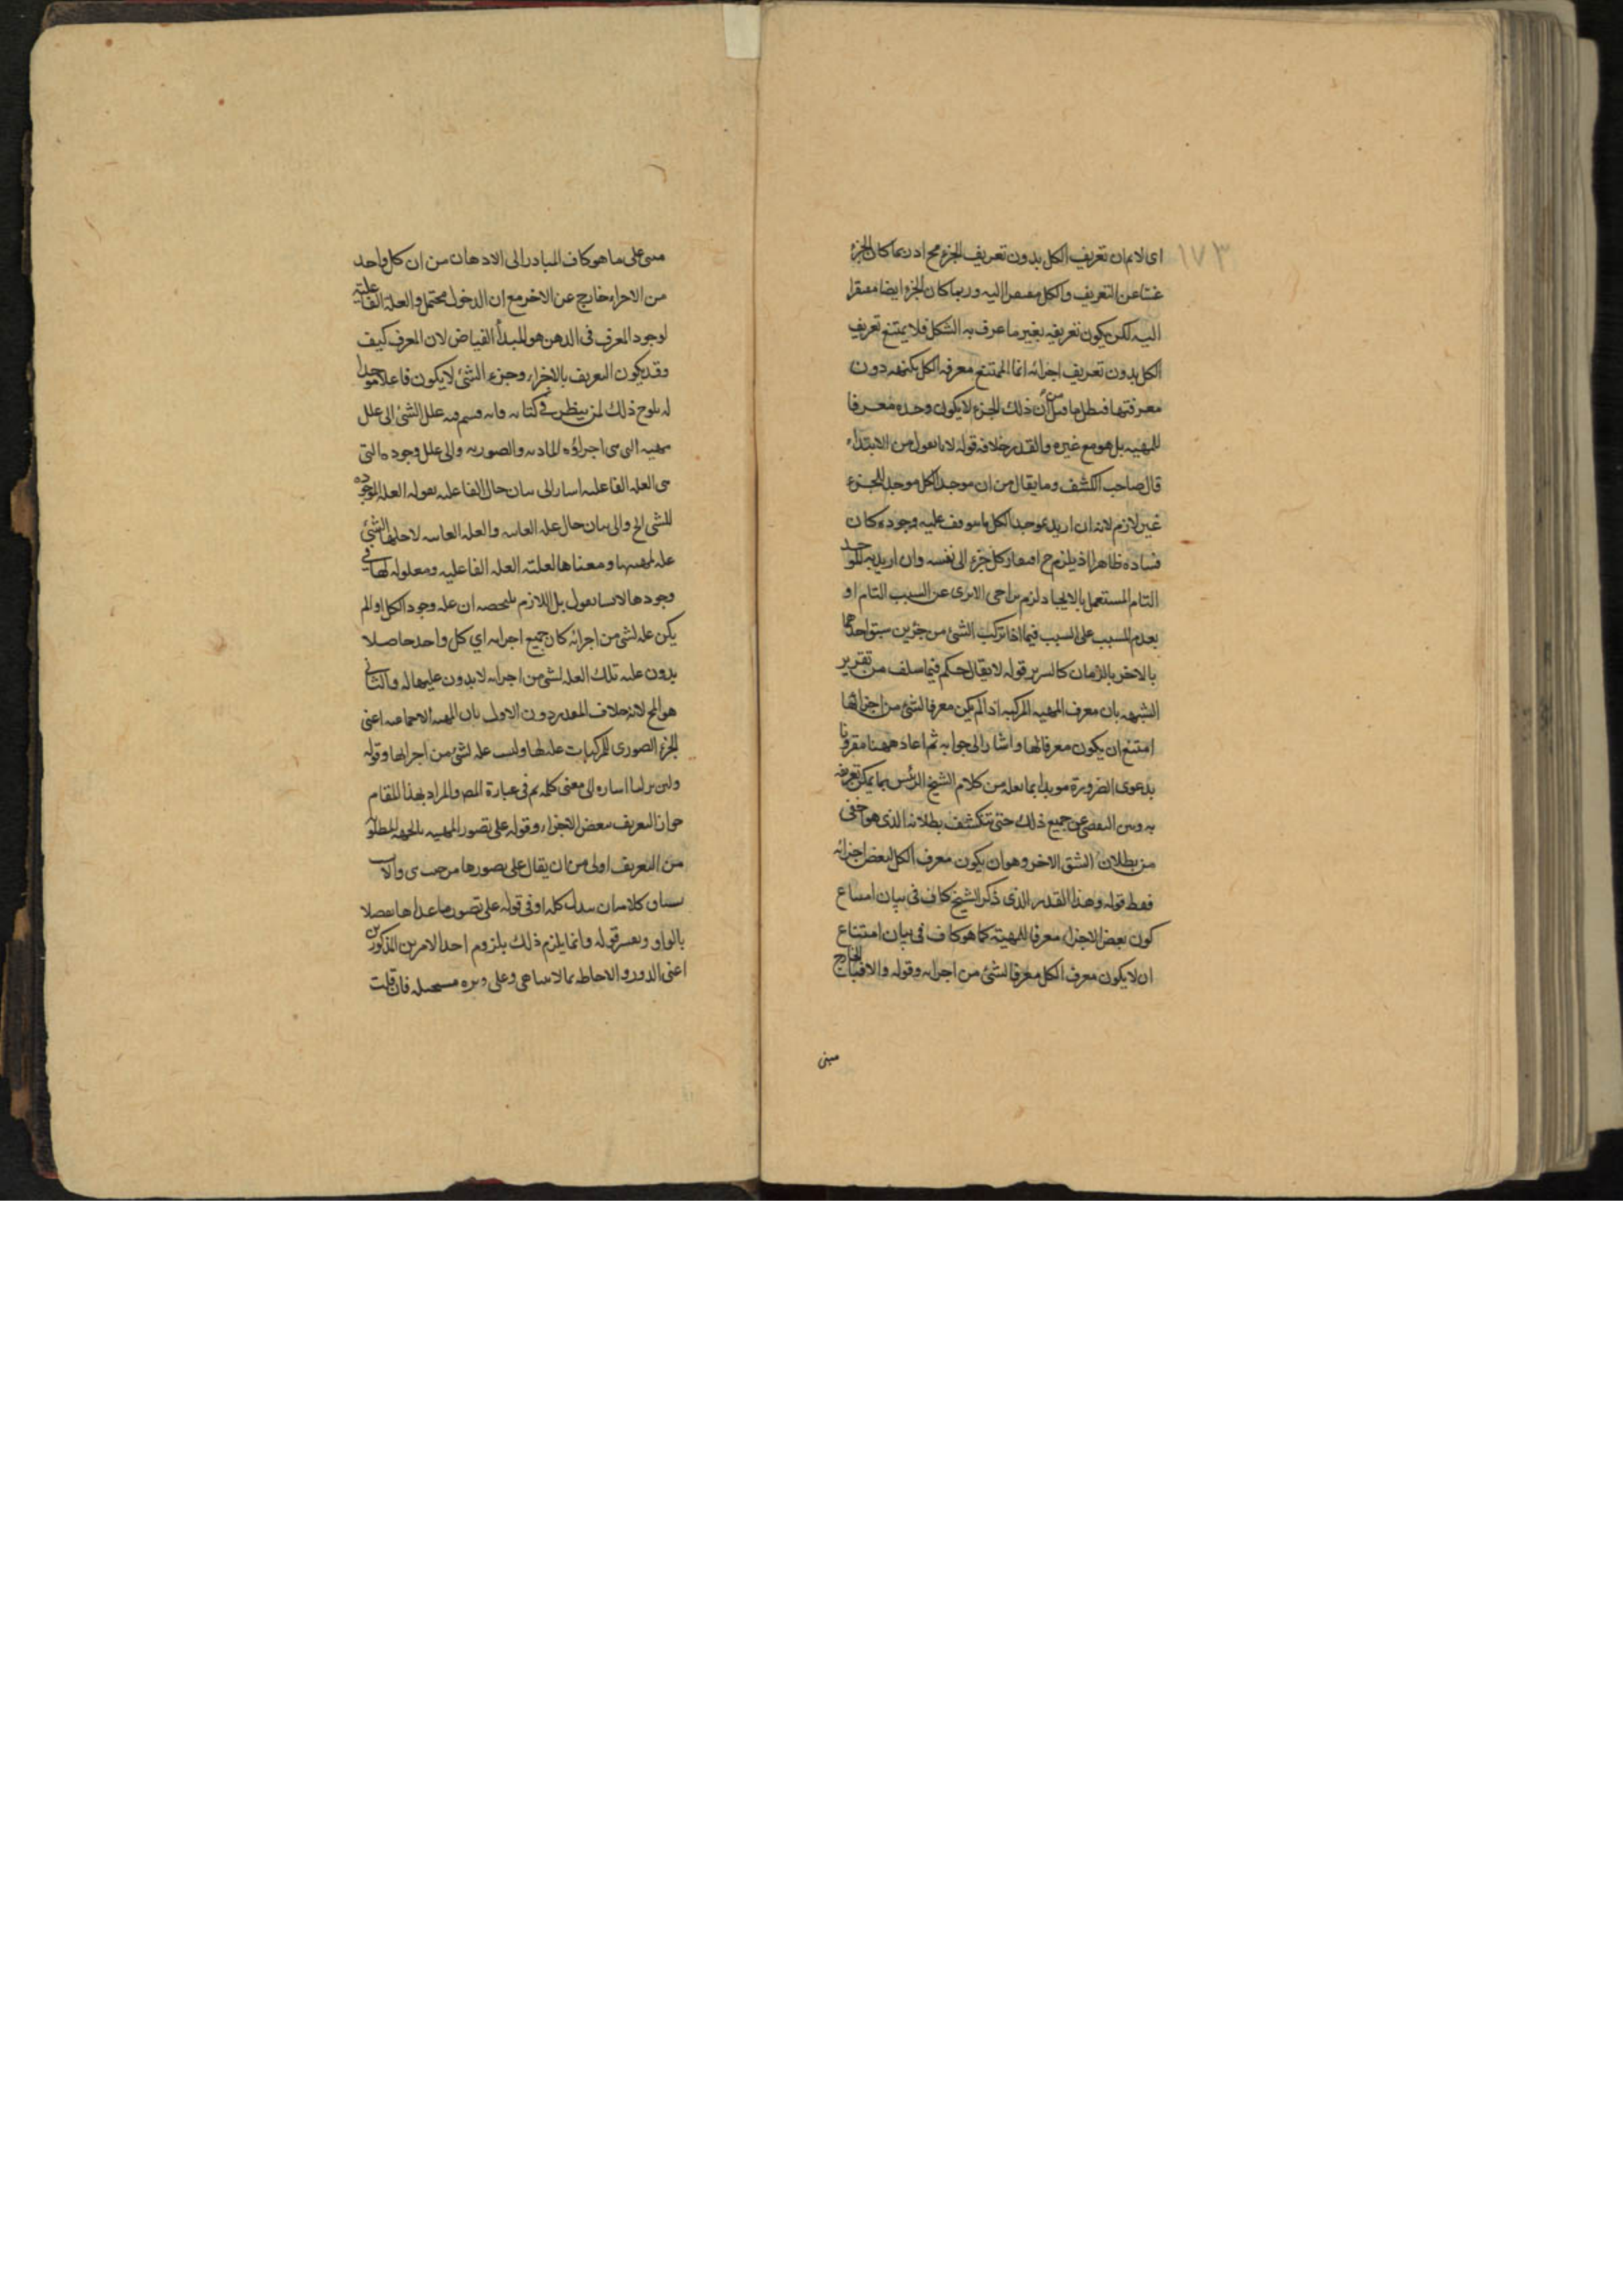 ١٧٣
اى لا نم ان تعريف الكل بدون تعريف الجزء مح اذ ربما كان الجزء
غنيا عن التعريف والكل مفتقرا اليه وربما كان الجزء ايضا مفتقرا
اليه لكن يكون تعريفه بغير ما عرف به الشكل فلا يمتنع تعريف
الكل بدون تعريف اجزائه انما الممتنع معرفه الكل بكنهه دون
معرفتها فبطل ما قيل من ان ذلك الجزء لا يكون وحده معرفا
للمهيه بل هو مع غيره والمقدر خلافه قوله لانا نقول من الابتداء
قال صاحب الكشف وما يقال من ان موجد الكل موجد للجزء
غير لازم لانه ان اريد بموجد الكل ما يتوقف عليه وجوده كان
فساده ظاهرا اذ يلزم ح افتقار كل جزء الى نفسه وان اريد به الموجد
التام المستعمل بالايجاد لزم تراخى الاثرى عن السبب التام او
تقدم المسبب على السبب فيما اذا تركب الشئ من جزئين سبق احدهما
بالاخر بالزمان كالسرير قوله لا يقال حكم فيما سلف من تقرير
الشبهه بان معرف المهيه المركبه اذا لم يكن معرفا لشئ من اجزائها
امتنع ان يكون معرفا لها واشار الى جوابه ثم اعاد ههنا مقرونا
بدعوى الضرورة مويدا بما نقله من كلام الشيخ الرئيس بما يمكن تعريفه
به وبين التفصى عن جميع ذلك حتى تنكشف بطلانه الذى هو اخفى
من بطلان الشق الاخر وهو ان يكون معرف الكل لبعض اجزائه
فقط قوله وهذا القدر الذى ذكر الشيخ كاف فى بيان امتناع
كون بعض الاجزاء معرفا للمهية كما هو كاف فى بيان امتناع
ان لا يكون معرف الكل معرفا لشئ من اجزائه وقوله والا فبالخارج
مبنى
مبنى على ما هو كاف المبادر الى الاذهان من ان كل واحد
من الاجزاء خارج عن الاخر مع ان الدخول محتمل والعلة الفاعلية
لوجود المعرف فى الذهن هو المبدأ الفياض لان المعرف كيف
وقد يكون التعريف بالاجزاء وجزء الشئ لا يكون فاعلا موجدا
له يلوح ذلك لمن ينظر فى كتابه فانه قسم فيه علل الشئ الى علل
مهيه التى هى اجزاؤه الماديه والصوريه والى علل وجوده التى
هى العله الفاعليه اشار الى بيان حال الفاعليه بقوله العله الموجده
للشئ الخ والى بيان حال عله الغائيه والعله الغائيه لاجلها الشئ
عله لمهيتها ومعناها لعلته العله الفاعليه ومعلوله لها فى
وجودها لانا نقول بل اللازم ملخصه ان عله وجود الكل او لم
يكن عله لشئ من اجزائه كان جميع اجزائه اي كل واحد حاصلا
بدون عليه تلك العله لشئ من اجزائه لا بدون عليتها له والثانى
هو المح لانه خلاف المقدر دون الاول فان الهيئه الاجتماعيه اعنى
الجزء الصورى للمركبات عله لها وليست عله لشئ من اجزائها وقوله
ولئن نزلنا اشاره الى معنى كلمه ثم فى عبارة المص والمراد بهذا المقام
جواز التعريف ببعض الاجزاء وقوله على تصور المهيه بالجهه المطلوبه
من التعريف اولى من ان يقال على تصورها من حيث هى والا
سياق كلامه ان يبدل كله او فى قوله على تصور ما عداها مفصلا
بالواو وتفسر قوله وانما يلزم ذلك بلزوم احد الامرين المذكورين
اعنى الدور والاحاطه بما لا يتناهى وعلى مستحيله فان قلت